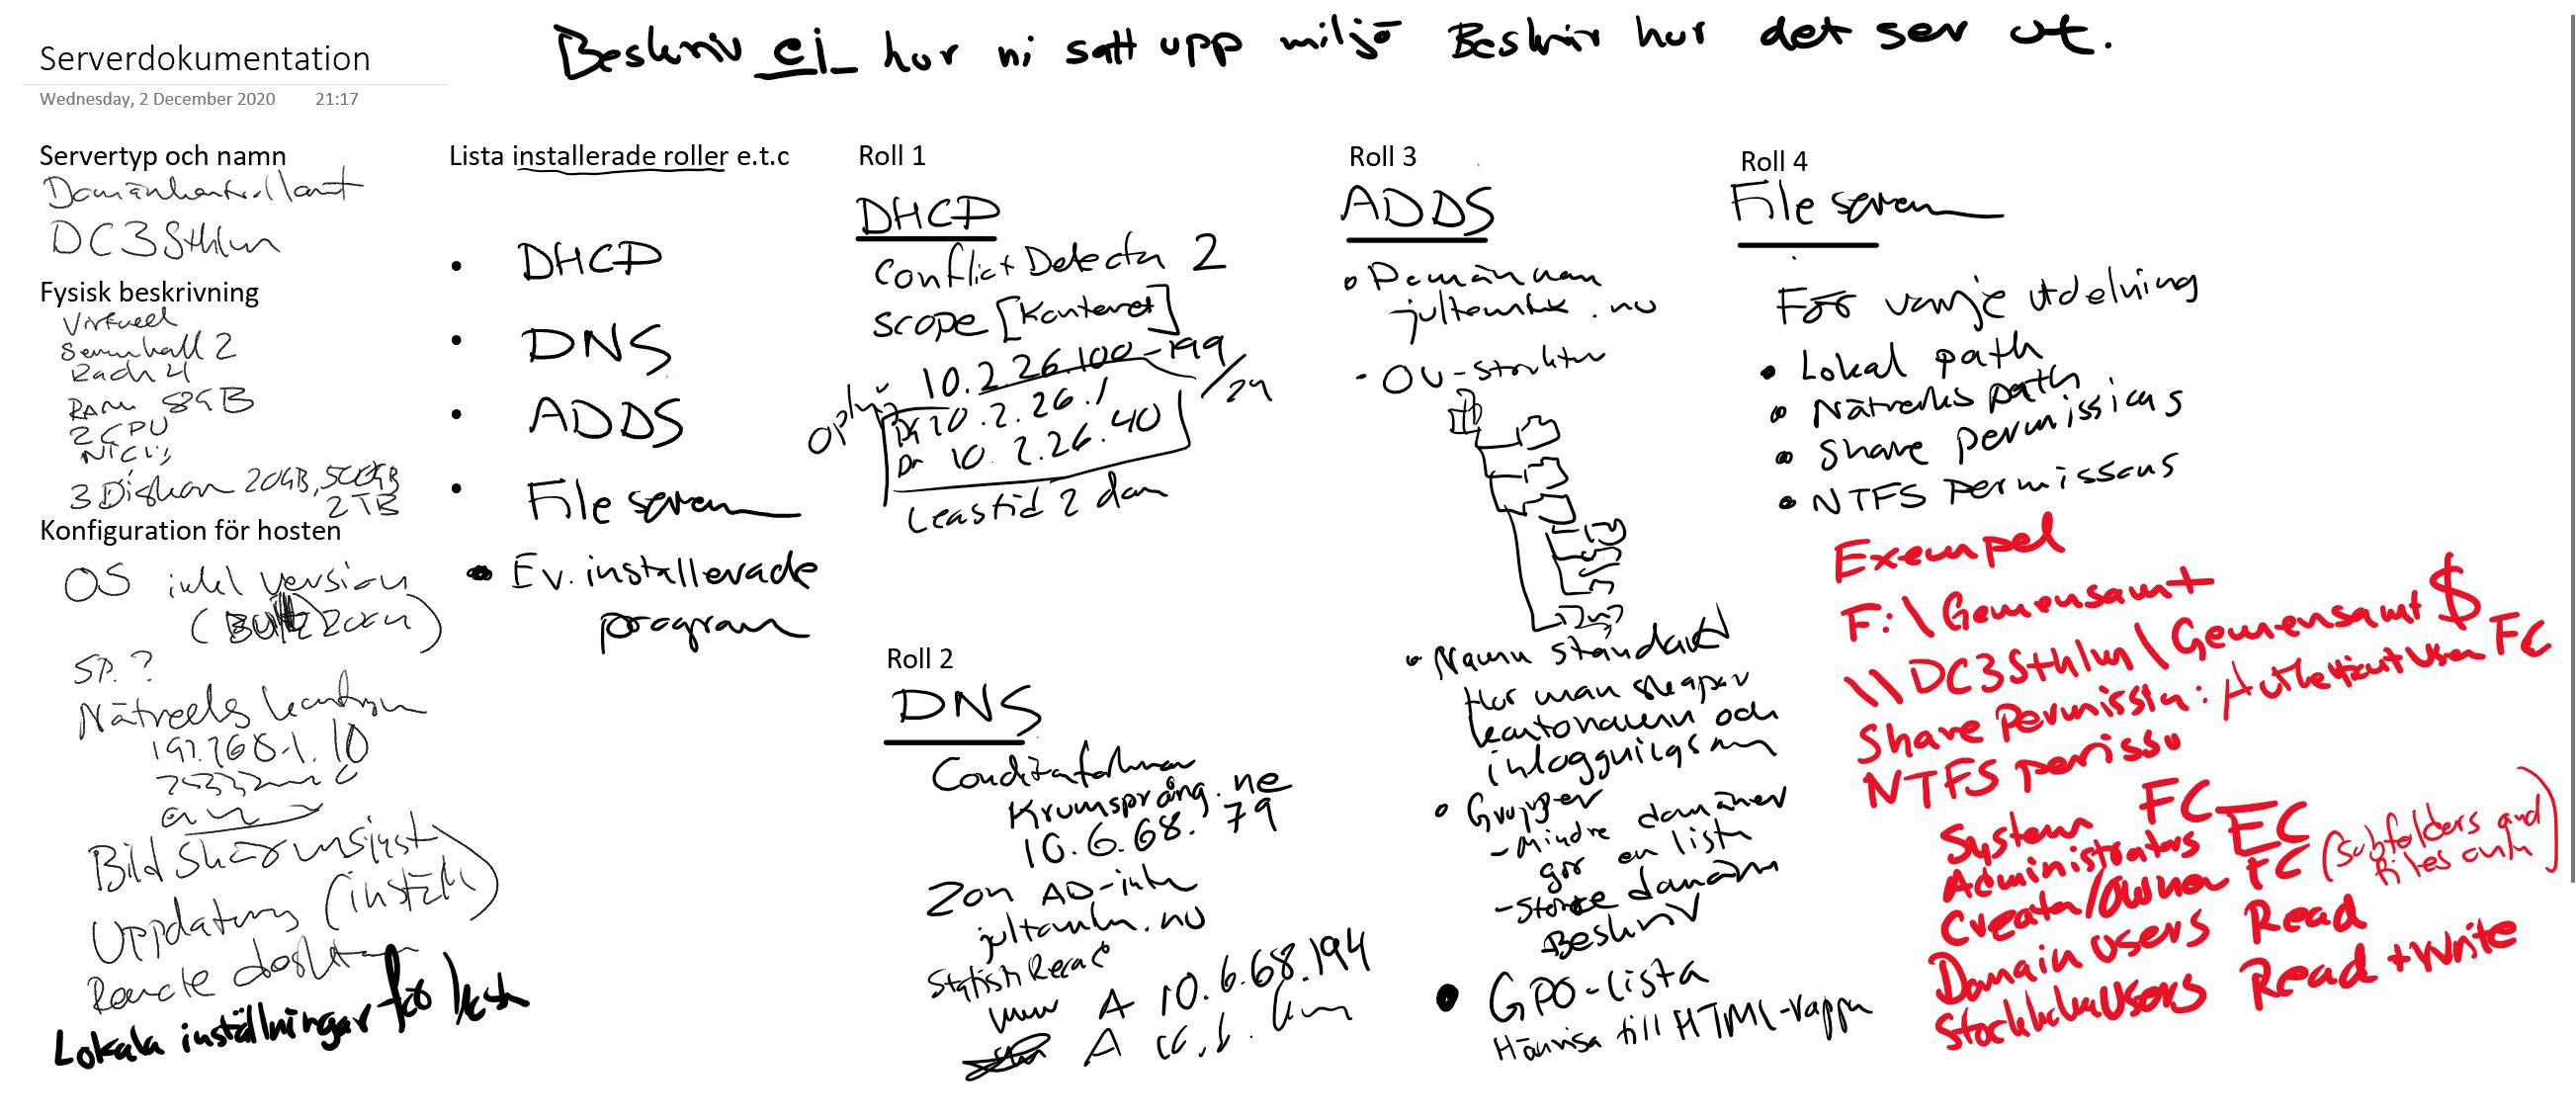 Serverdokumentation
Wednesday, 2 December 2020 21:17
Beskriv ej hur ni satt upp miljö Beskriv hur det ser ut.
Servertyp och namn
Domänkontrollant
DC3Sthlm
Fysisk beskrivning
Virtuell
Serverhall 2
Rack 4
RAM 8GB
2 CPU
NIC
3 Diskar 20GB, 500GB
2TB
Konfiguration för hosten
OS inkl version
SP.?
Nätverks
Bildskärmsinst
Uppdatering (inställ)
Remote desktop
Lokala inställningar för
Lista installerade roller e.t.c
• DHCP
• DNS
• ADDS
• File server
• Ev. installerade
program
Roll 1
DHCP
Conflict Detection 2
Scope [Kontoret]
10.2.26.100-199
/24
10.2.26.1
10.2.26.40
Leastid 2 dar
Roll 2
DNS
Krumsprång.
10.6.68.79
Zon AD-int
.nu
www A 10.6.68.194
A
Roll 3
ADDS
• Domännamn
.nu
• OU-struktur
• Namn standard
Hur man skapar
kontonamn och
inloggningsnamn
• Grupper
- Mindre domäner
gör en lista
- Större domäner
Beskriv
• GPO-lista
Hänvisa till HTML-rapport
Roll 4
File server
För varje utdelning
• Lokal path
• Nätverks path
• Share permissions
• NTFS Permissions
Exempel
F:\Gemensamt
\\DC3Sthlm\Gemensamt$
Share Permission: FC
NTFS
System FC
Administrators
Creator/Owner FC (Subfolders and
files only)
Domain Users Read
Read + Write